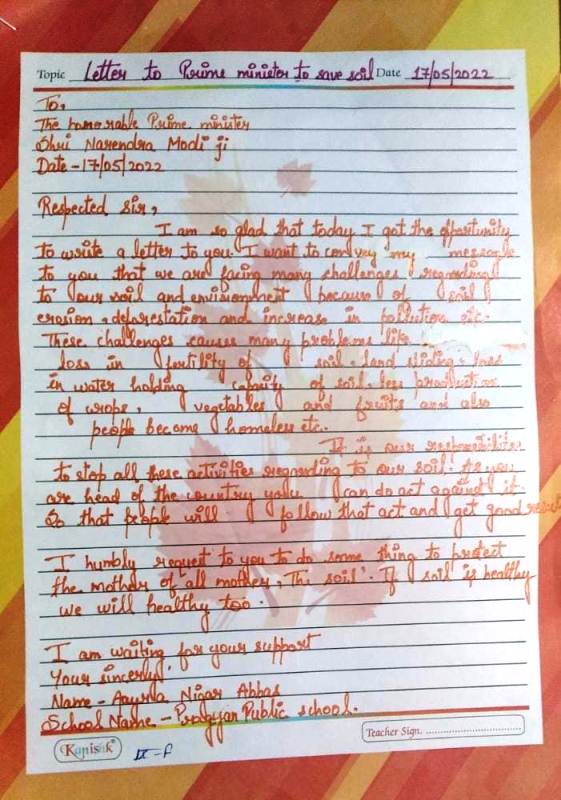 Topic Letter to Prime minister to save soil Date 17/05/2022
To,
The honorable Prime minister
Shri Narendra Modi ji
Date - 17/05/2022
Respected Sir,
I am so glad that today I got the opportunity
to write a letter to you. I want to convey my message
to you that we are facing many challenges regarding
to our soil and environment because of soil
erosion, deforestation and increase in pollution etc.
These challenges causes many problems like
loss in fertility of soil, land sliding, loss
in water holding capacity of soil, less production
of crops, vegetables and fruits and also
people become homeless etc.
It is our responsibility
to stop all these activities regarding to our soil. As you
are head of the country you can do act against it.
So that people will follow that act and get good result
I humbly request to you to do some thing to protect
the mother of "all mother, The soil". If soil is healthy
we will healthy too.
I am waiting for your support
Your sincerly
Name - Nigar Abbas
School Name - Pragyan Public school.
Kanisak
IX-F
Teacher Sign.